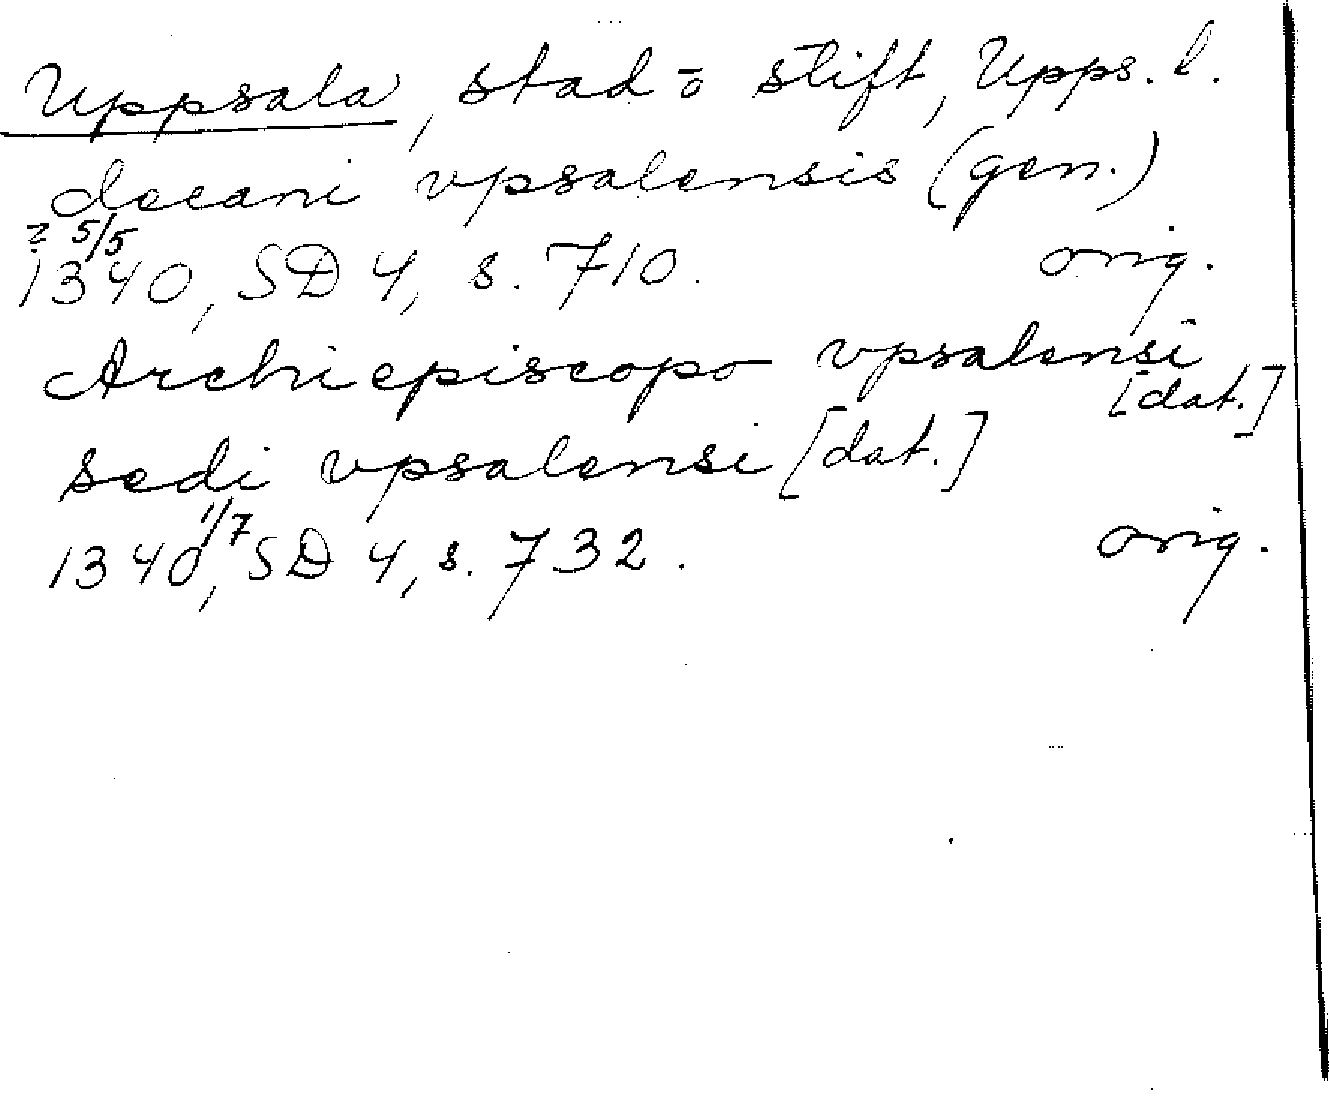 Uppsala, stad o stift, Upps. l.
decani vpsalensis (gen.)
? 5/5
1340, SD 4, s. 710. orig.
Archiepiscopo vpsalensi
[dat.]
sedi vpsalensi [dat.]
1/7
1340, SD 4, s. 732. orig.